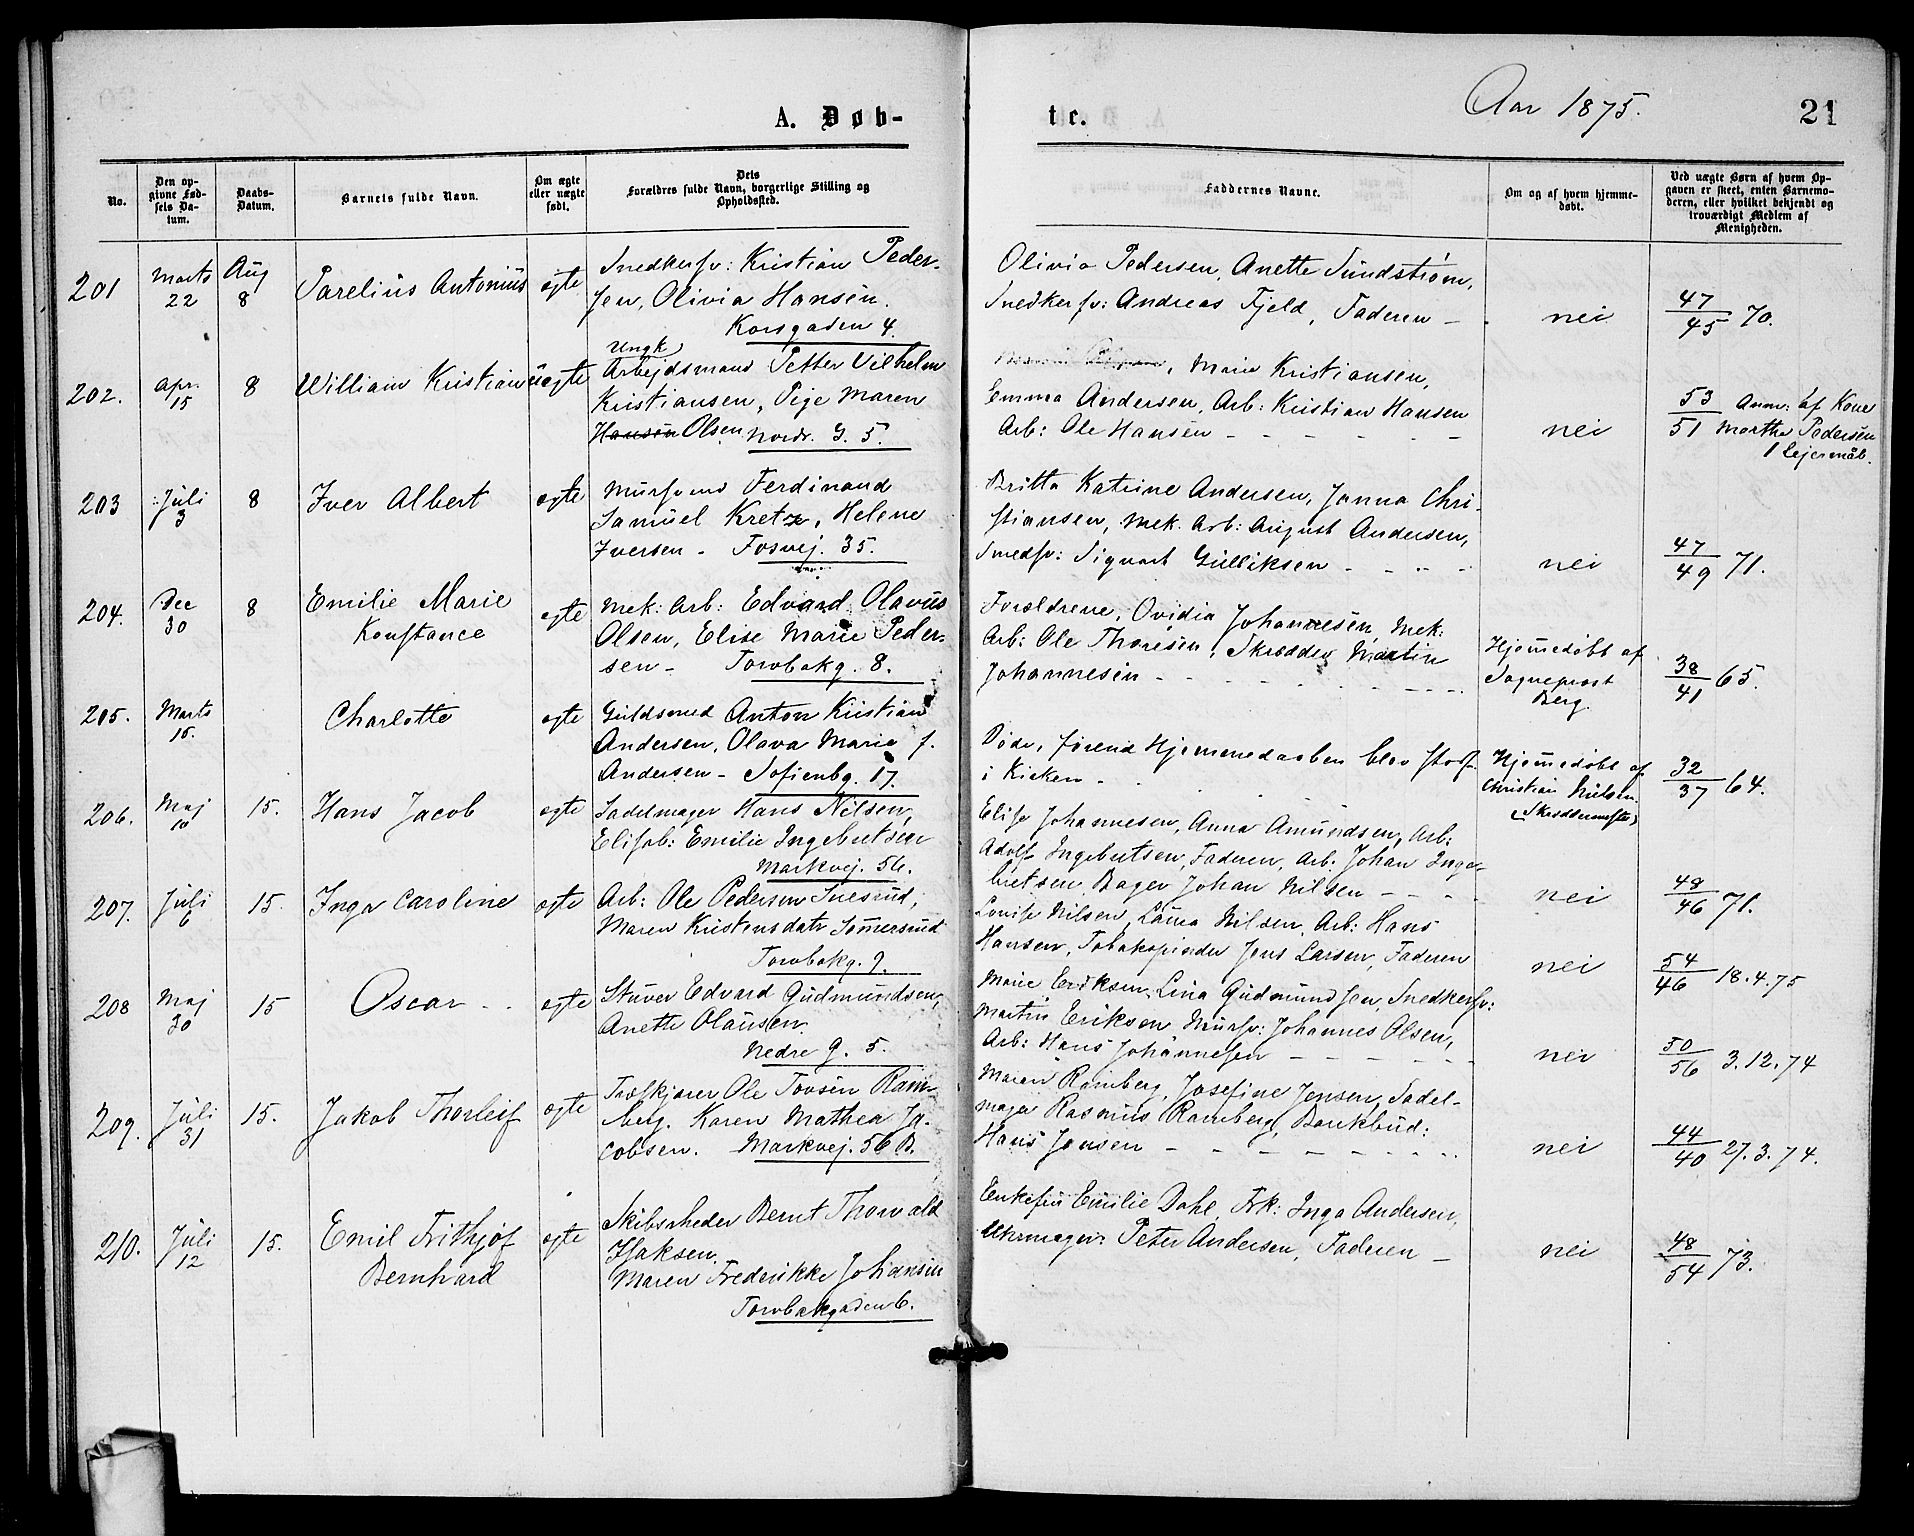 A. Døb-
No.
Den op-
givne Fød-
sels Da-
tum.
Daabs-
Datum.
Barnets fulde Navn.
Om ægte
eller uægte
født.
Dets
Forældres fulde Navn, borgerlige Stilling og
Opholdssted.
201
Marts
22
Aug
8
Parelius Antonius
ægte
Snedkersv: Kristian Peder-
sen, Olivia Hansen.
Korsgaden 4.
202.
Apr.
15
8
William Kristian
uægte
Ungk
Arbejdsmand Petter Vilhelm
Kristiansen, Pige Maren
Hansen Olsen Nordr. G. 5.
203
Juli
3
8
Iver Albert
ægte
Mursvend Ferdinand
Samuel Kretz, Helene
Iversen - Fosvej. 35.
204.
Dec
30
8
Emilie Marie
Konstance
ægte
Mek: Arb: Edvard Olavus
Olsen, Elise Marie Peder-
sen - Torvbakg. 8.
205.
Marts
15.
Charlotte
ægte
Guldsmed Anton Kristian
Andersen, Olava Marie f.
Andersen - Sofienbg. 17.
206.
Maj
10
15.
Hans Jacob
ægte
Sadelmager Hans Nilsen,
Elisab: Emilie Ingebretsen
Markvej. 56.
207.
Juli
6
15.
Inga Caroline
ægte
Arb: Ole Pedersen Snesrud,
Maren Kristensdatr Sømersrud
Torvbakg. 9.
208
Maj
30
15
Oscar
ægte
Stuver Edvard Gudmundsen,
Anette Olausen.
Nedre g. 5.
209.
Juli
31
15.
Jakob Thorleif
ægte
Trælkjører Ole Tovsen Ram-
berg. Karen Mathea Ja-
cobsen. Markvej. 56 B.
210.
Juli
12
15.
Emil Frithjof
Bernhard
ægte
Skibsrheder Bernt Thorvald
Isaksen.
Maren Frederikke Johansen
Torvbakgaden 6.
te.
Aar 1875.
21
Faddernes Navne.
Om og af hvem hjemme-
døbt.
Ved uægte Børn af hvem Op-
gaven er skeet, enten Barnemo-
deren, eller hvilket bekjendt og
troværdigt Medlem af
Menigheden.
Olivia Pedersen, Anette Sundstrøm,
Snedkersv: Andreas Fjeld, Faderen -
nei
47/45 70.
Marie Kristiansen,
Emma Andersen, Arb: Kristian Hansen
Arb: Ole Hansen
nei
53/51 Anm: af Kone
Marthe Pedersen
1 Lejermål.
Britta Katrine Andersen, Janna Chri-
stiansen, Mek. Arb: August Andersen,
Smedsv: Sigvart Gulliksen
nei
47/49 71.
Forældrene, Ovidia Johannesen, Mek:
Arb: Ole Thoresen, Skrædder Martin
Johannesen
Hjemmedøbt af
Sogneprest
Berg.
38/41 65.
Døde, førend Hjemmedaaben blev stadf.
i Kirken
Hjemmedøbt af
Christian Nielsen.
(Skreddermester)
32/37 64.
Elise Johannesen, Anna Amundsen, Arb:
Adolf Ingebretsen, Faderen, Arb. Johan Inge-
bretsen, Bager Johan Nilsen
nei
48/46 71.
Louise Nilsen, Laura Nilsen, Arb: Hans
Hansen, Tobakspinder Jens Larsen, Faderen
nei
54/46 18.4.75
Marie Eriksen, Lina Gudmundsen, Snedkersv:
Martin Eriksen, Mursv: Johannes Olsen,
Arb: Hans Johannesen
nei
50/56 3.12.74
Maren Ramberg, Josefine Jensen, Sadel-
mager Rasmus Ramberg, Bankbud:
Hans Jensen
nei
44/40 27.3.74.
Enkefru Emilie Dahl, Frk: Inga Andersen,
Uhrmager Peter Andersen, Faderen -
nei
48/54 73.